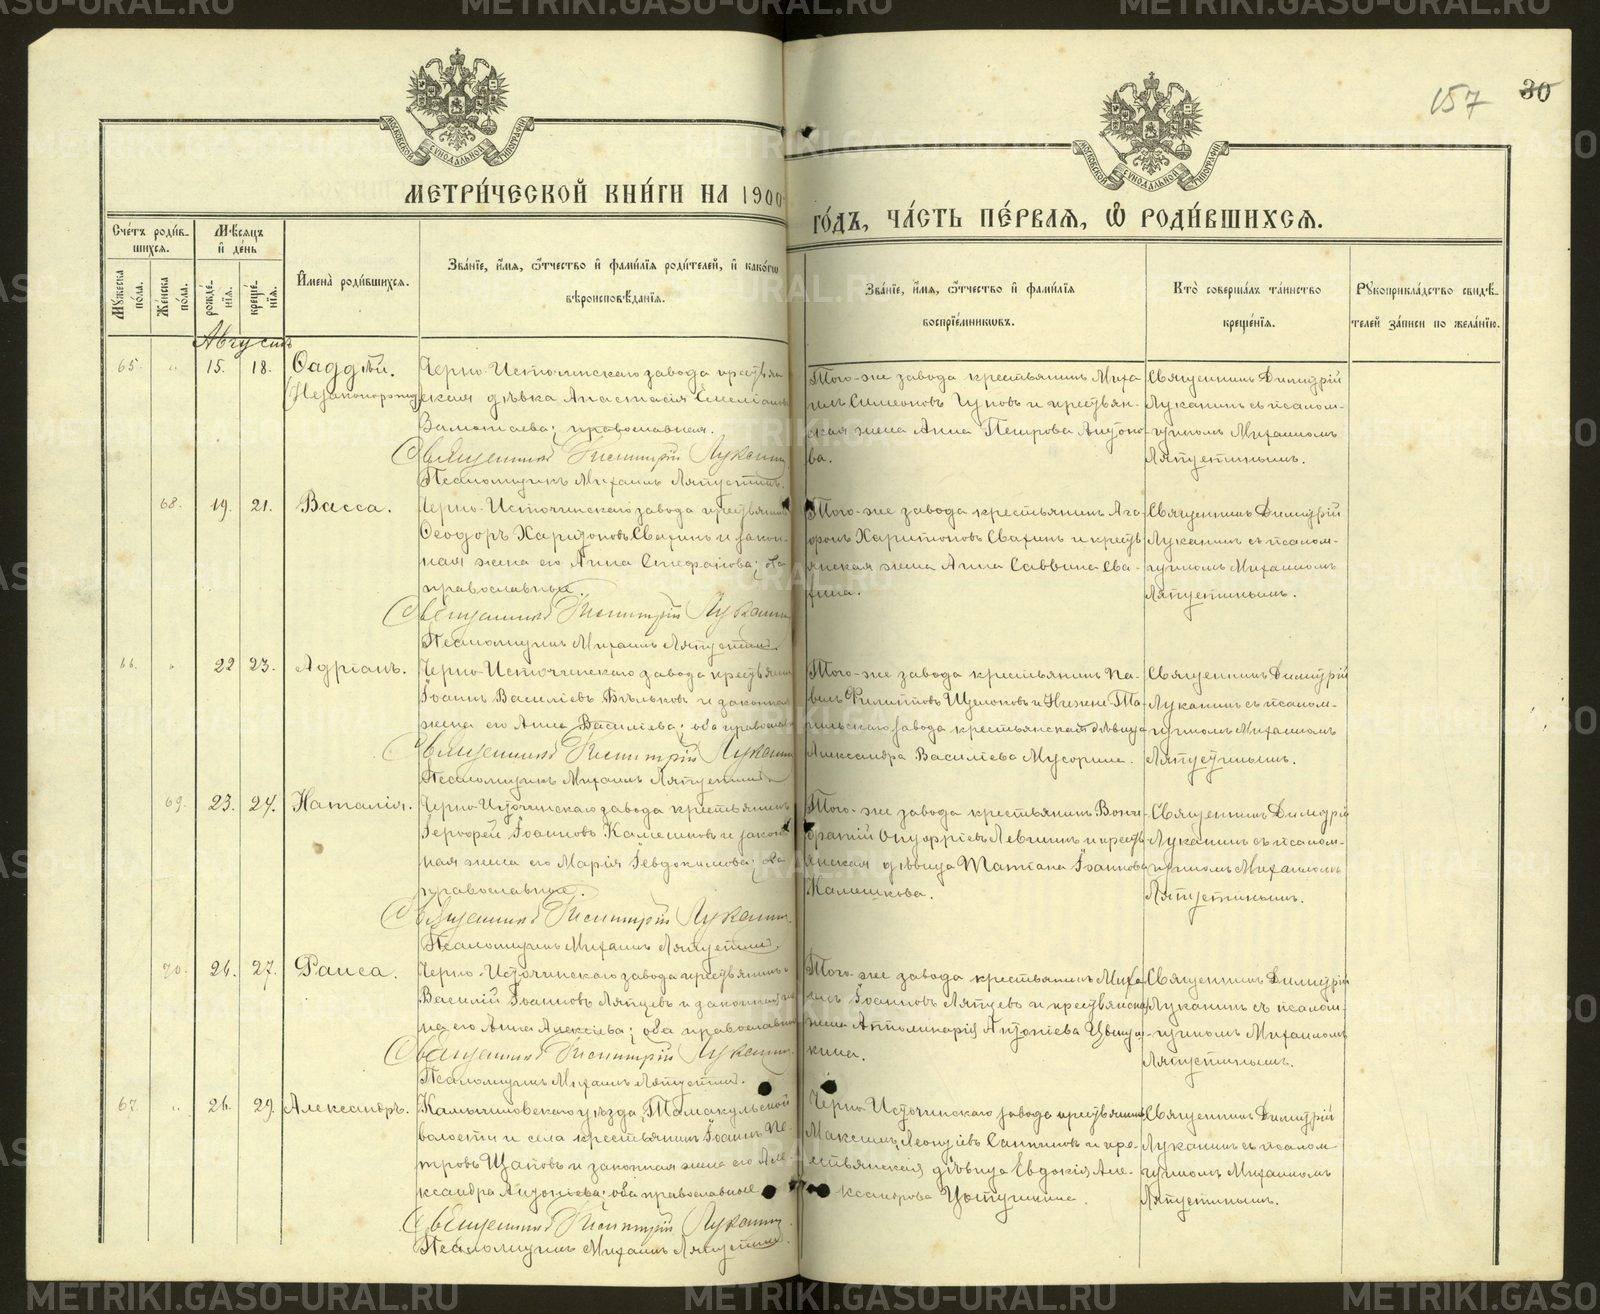 157 30
МОСКОВСКОЙ СѴНОДАЛЬНОЙ ТИПОГРАФІИ
МОСКОВСКОЙ СѴНОДАЛЬНОЙ ТИПОГРАФІИ
МЕТРИ́ЧЕСКОЙ КНИ́ГИ НА 1900
ГО́ДЪ, ЧА́СТЬ ПЕ́РВАЯ, Ѽ РОДИ́ВШИХСЯ.
Сче́тъ роди́в-
шихся.
Мѣсяцъ
и҆ де́нь
Мꙋжеска по́ла.
Же́нска по́ла.
рожде́-
нїя.
креще́-
нїя.
И҆мена̀ роди́вшихся.
Зва́нїе, и҆́мя, ѻ҆́тчество и҆ фами́лїя роди́телей, и҆ како́гѡ
вѣроисповѣ́данїя.
Зва́нїе, и҆́мя, ѻ҆́тчество и҆ фами́лїя
воспрїе́мникѡвъ.
Кто̀ соверша́лъ та́инство
креще́нїя.
Рꙋкоприкла́дство свидѣ́-
телей за́писи по жела́нїю.
Августъ
65. „ 15. 18. Ѳаддѣй.
(Незаконорожд
Черно-Источинскаго завода крестьян
ская дѣвка Анастасія Емеліанова
православная.
Священникъ Димитрій Луканинъ
Псаломщикъ Михаилъ Ляпустинъ.
Того-же завода крестьянинъ Миха
илъ Симеоновъ и крестьян-
ская жена Анна Петрова Антоно-
ва.
Священникъ Димитрій
Луканинъ съ псалом-
щикомъ Михаиломъ
Ляпустинымъ.
68. 19. 21. Васса.
Черно-Источинскаго завода крестьянинъ
Ѳеодоръ Харитоновъ Свахинъ и закон-
ная жена его Анна Стефанова; оба
православные.
Священникъ Димитрій Луканинъ
Псаломщикъ Михаилъ Ляпустинъ
Того-же завода крестьянинъ Ага-
фонъ Харитоновъ Свахинъ и кресть
янская жена Анна Саввина Сва-
хина.
Священникъ Димитрій
Луканинъ съ псалом-
щикомъ Михаиломъ
Ляпустинымъ.
66. „ 22 23. Адріанъ.
Черно-Источинскаго завода крестьянинъ
Іоаннъ Василіевъ Бѣльковъ и законная
жена его Анна Василіева; оба православн
Священникъ Димитрій Луканинъ
Псаломщикъ Михаилъ Ляпустинъ
Того-же завода крестьянинъ Па-
велъ Филипповъ Щелоковъ и Нижне-Та-
гильскаго завода крестьянская дѣвица
Александра Василіева Мусорина.
Священникъ Димитрій
Луканинъ съ псалом-
щикомъ Михаиломъ
Ляпустинымъ.
69. 23. 24. Наталія.
Черно-Источинскаго завода крестьянинъ
Іерофей Іоанновъ Камешковъ и закон
ная жена его Марія Іевдокимова; оба
православные.
Священникъ Димитрій Луканинъ.
Псаломщикъ Михаилъ Ляпустинъ.
Того-же завода крестьянинъ Вони-
фатій Онуфріевъ Левшинъ и кресть
янская дѣвица Татіана Іоаннова
Камешкова.
Священникъ Димитрій
Луканинъ съ псалом-
щикомъ Михаиломъ
Ляпустинымъ.
70. 26. 27. Раиса.
Черно-Источинскаго завода крестьянинъ
Василій Іоанновъ Ляпцевъ и законная же
на его Анна Алексіева; оба православны
Священникъ Димитрій Луканинъ.
Псаломщикъ Михаилъ Ляпустинъ.
Того-же завода крестьянинъ Миха
илъ Іоанновъ Ляпцевъ и крестьянская
жена Аполинарія Антоніева
кина.
Священникъ Димитрій
Луканинъ съ псалом-
щикомъ Михаиломъ
Ляпустинымъ.
67. „ 26. 29. Александръ.
Камышловскаго уѣзда, Тамакульской
волости и села крестьянинъ Іоаннъ Пе-
тровъ Щаповъ и законная жена его Але
ксандра Антоніева; оба православные
Священникъ Димитрій Луканинъ.
Псаломщикъ Михаилъ Ляпустинъ
Черно-Источинскаго завода крестьянинъ
Максимъ Леонтіевъ Санниковъ и кре-
стьянская дѣвица Евдокія Але-
ксандрова
Священникъ Димитрій
Луканинъ съ псалом-
щикомъ Михаиломъ
Ляпустинымъ.
METRIKI.GASO-URAL.RU